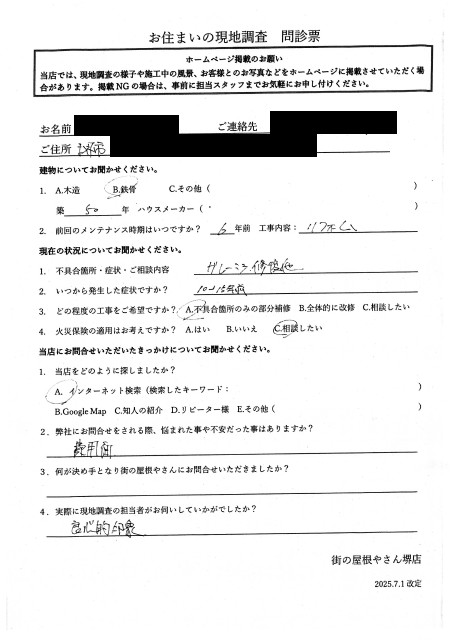 お住まいの現地調査 問診票
ホームページ掲載のお願い
当店では、現地調査の様子や施工中の風景、お客様とのお写真などをホームページに掲載させていただく場
合があります。掲載NGの場合は、事前に担当スタッフまでお気軽にお申し付けください。
お名前 ご連絡先
ご住所
建物についてお聞かせください。
1. A.木造 B.鉄骨 C.その他（ ）
築 50 年 ハウスメーカー（ ）
2. 前回のメンテナンス時期はいつですか？ 6 年前 工事内容： リフォーム
現在の状況についてお聞かせください。
1. 不具合箇所・症状・ご相談内容
2. いつから発生した症状ですか？ 10~15年前
3. どの程度の工事をご希望ですか？ A.不具合箇所のみの部分補修 B.全体的に改修 C.相談したい
4. 火災保険の適用はお考えですか？ A.はい B.いいえ C.相談したい
当店にお問合せいただいたきっかけについてお聞かせください。
1. 当店をどのように探しましたか？
A. インターネット検索（検索したキーワード： ）
B.Google Map C.知人の紹介 D.リピーター様 E.その他（ ）
2. 弊社にお問合をされる際、悩まれた事や不安だった事はありますか？
費用面
3. 何が決め手となり街の屋根やさんにお問合せいただきましたか？
4. 実際に現地調査の担当者がお伺いしていかがでしたか？
良心的印象
街の屋根やさん堺店
2025.7.1 改定